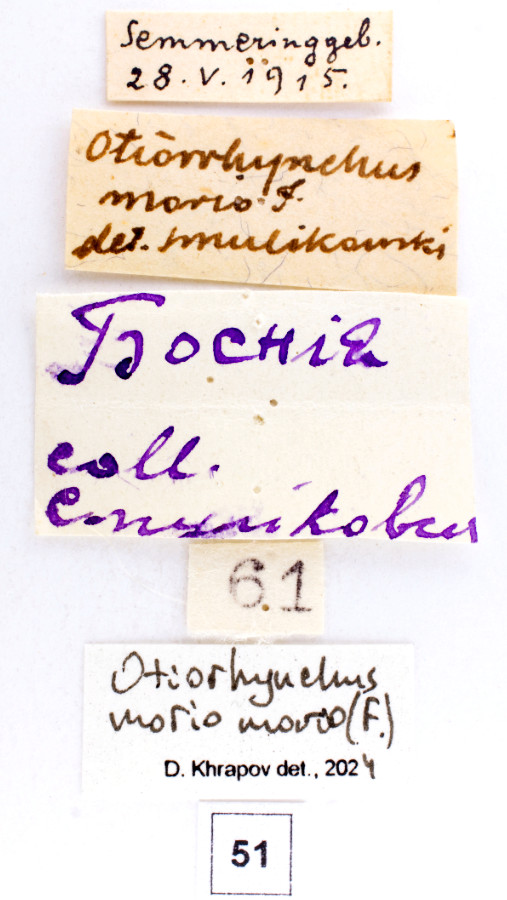 Semmeringgeb.
28.V.1915.
Otiorrhynchus
morio F.
det. Smulikowski
Боснія
coll.
Смуликовск
61
Otiorhynchus
morio morio (F.)
D. Khrapov det., 2024
51